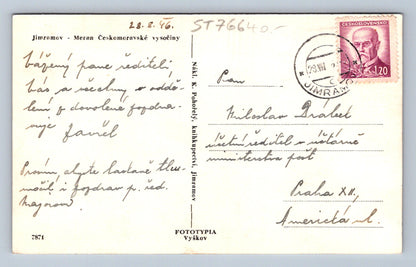 28.8.46.
ST76640.-
Jimramov - Meran Českomoravské vysočiny
Vážený pane řediteli
Vás a všechny v oddě-
lení z dovolené pozdra-
vuje
Prosím, abyste laskavě tlu-
močil i pozdrav p. řed.
7871
Nákl. K. Pokorný, knihkupectví, Jimramov
FOTOTYPIA
Vyškov
ČESKOSLOVENSKO
KČS 1.20
JIMRAMOV
Pan
Miloslav Drábek
účetní ředitel v účtárně
ministerstva pošt
Praha XII.,
Americká ul.